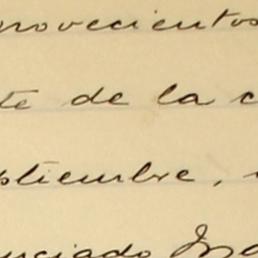 novecientos
te de la c
ptiembre,
nciado